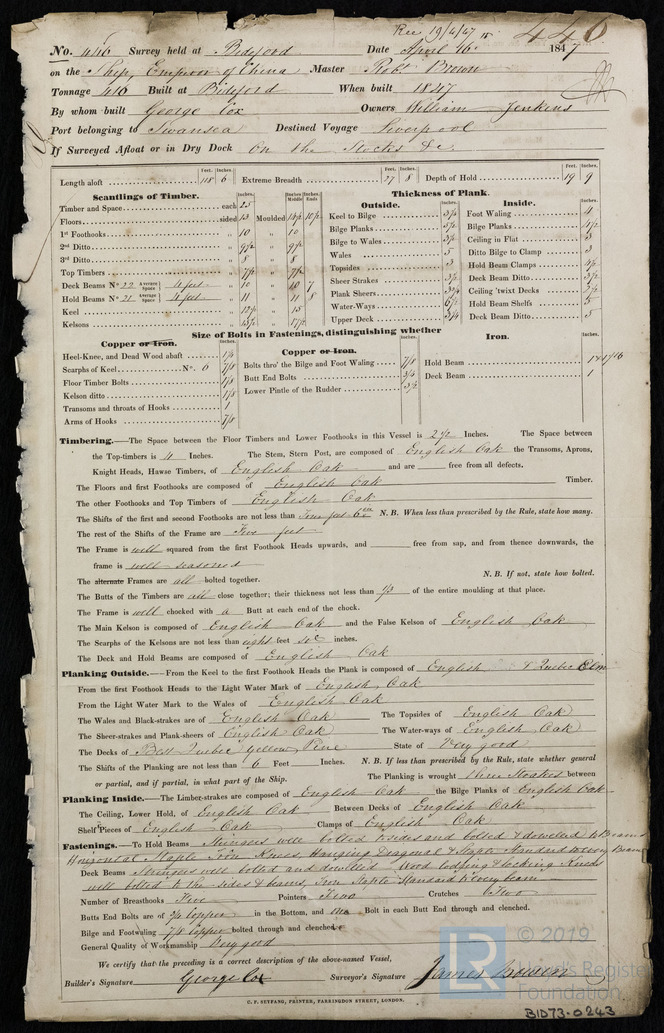 Rec 19/4/47
446
No. 446 Survey held at Bideford Date April 16 1847
on the Ship, Emperor of China Master Robt. Brown
Tonnage 416 Built at Bideford When built 1847
By whom built George Cox Owners William Jenkins
Port belonging to Swansea Destined Voyage Liverpool
If Surveyed Afloat or in Dry Dock On the Stocks &c.
Feet. Inches. Feet. Inches. Feet. Inches.
Length aloft 118 6 Extreme Breadth 27 8 Depth of Hold 19 9
Scantlings of Timber.
Timber and Space each 25
Floors sided 13 Moulded
1st Foothooks " 10 " 10
2nd Ditto " 9½ " 9½
3rd Ditto " 8 " 8
Top Timbers " 7½ " 7½
Deck Beams No. 22 Average Space 4 feet " 10 " 10 7
Hold Beams No. 21 Average Space 4 feet " 11 " 11 8
Keel
Kelsons
Thickness of Plank.
Outside.
Keel to Bilge
Bilge Planks
Bilge to Wales
Wales 5
Topsides 3
Sheer Strakes
Plank Sheers
Water-Ways
Upper Deck
Inside.
Foot Waling 4
Bilge Planks
Ceiling in Flat 3
Ditto Bilge to Clamp 3
Hold Beam Clamps
Deck Beam Ditto
Ceiling 'twixt Decks
Hold Beam Shelfs 5
Deck Beam Ditto 5
Size of Bolts in Fastenings, distinguishing whether
Copper or Iron.
Heel-Knee, and Dead Wood abaft
Scarphs of Keel No. 6 7/8
Floor Timber Bolts
Kelson ditto
Transoms and throats of Hooks 1
Arms of Hooks 7/8
Copper or Iron.
Bolts thro' the Bilge and Foot Waling 7/8
Butt End Bolts 3/4
Lower Pintle of the Rudder
Iron.
Hold Beam
Deck Beam 1
Timbering.—The Space between the Floor Timbers and Lower Footholds in this Vessel is 2½ Inches. The Space between
the Top-timbers is 4 Inches. The Stem, Stern Post, are composed of English Oak the Transoms, Aprons,
Knight Heads, Hawse Timbers, of English Oak and are free from all defects.
The Floors and first Footholds are composed of English Oak Timber.
The other Footholds and Top Timbers of English Oak
The Shifts of the first and second Footholds are not less than Five feet 6 in N. B. When less than prescribed by the Rule, state how many.
The rest of the Shifts of the Frame are Five feet
The Frame is well squared from the first Foothook Heads upwards, and free from sap, and from thence downwards, the
frame is well seasoned
The alternate Frames are all bolted together. N. B. If not, state how bolted.
The Butts of the Timbers are all close together; their thickness not less than 1/3 of the entire moulding at that place.
The Frame is well chocked with a Butt at each end of the chock.
The Main Kelson is composed of English Oak and the False Kelson of English Oak
The Scarphs of the Kelsons are not less than eight feet six inches.
The Deck and Hold Beams are composed of English Oak
Planking Outside.—From the Keel to the first Foothook Heads the Plank is composed of English & Quebec Elm
From the first Foothook Heads to the Light Water Mark of English Oak
From the Light Water Mark to the Wales of English Oak
The Wales and Black-strakes are of English Oak The Topsides of English Oak
The Sheer-strakes and Plank-sheers of English Oak The Water-ways of English Oak
The Decks of Best Quebec Yellow Pine State of Very good
The Shifts of the Planking are not less than 6 Feet Inches. N. B. If less than prescribed by the Rule, state whether general
or partial, and if partial, in what part of the Ship. The Planking is wrought three Strakes between
Planking Inside.—The Limber-strakes are composed of English Oak the Bilge Planks of English Oak
The Ceiling, Lower Hold, of English Oak Between Decks of English Oak
Shelf Pieces of English Oak Clamps of English Oak
Fastenings.—To Hold Beams Stringers well bolted to sides and bolted & doweled to Beams
Horizontal Staple Iron Knees, Hanging Diagonal & Staple Standard to every Beam
Deck Beams Stringers well bolted and dowelled Wood lodging & locking Knees
well bolted to the sides & beams, Iron Staple Standard to every beam
Number of Breasthooks Five Pointers Two Crutches Two
Butts End Bolts are of ¾ Copper in the Bottom, and one Bolt in each Butt End through and clenched.
Bilge and Footwaling 7/8 Copper bolted through and clenched.
General Quality of Workmanship Very good
We certify that the preceding is a correct description of the above-named Vessel,
Builder's Signature George Cox Surveyor's Signature James
C. F. SEYFANG, PRINTER, FARRINGDON STREET, LONDON.
LR © 2019
Lloyd's Register
Foundation
BID73-0243